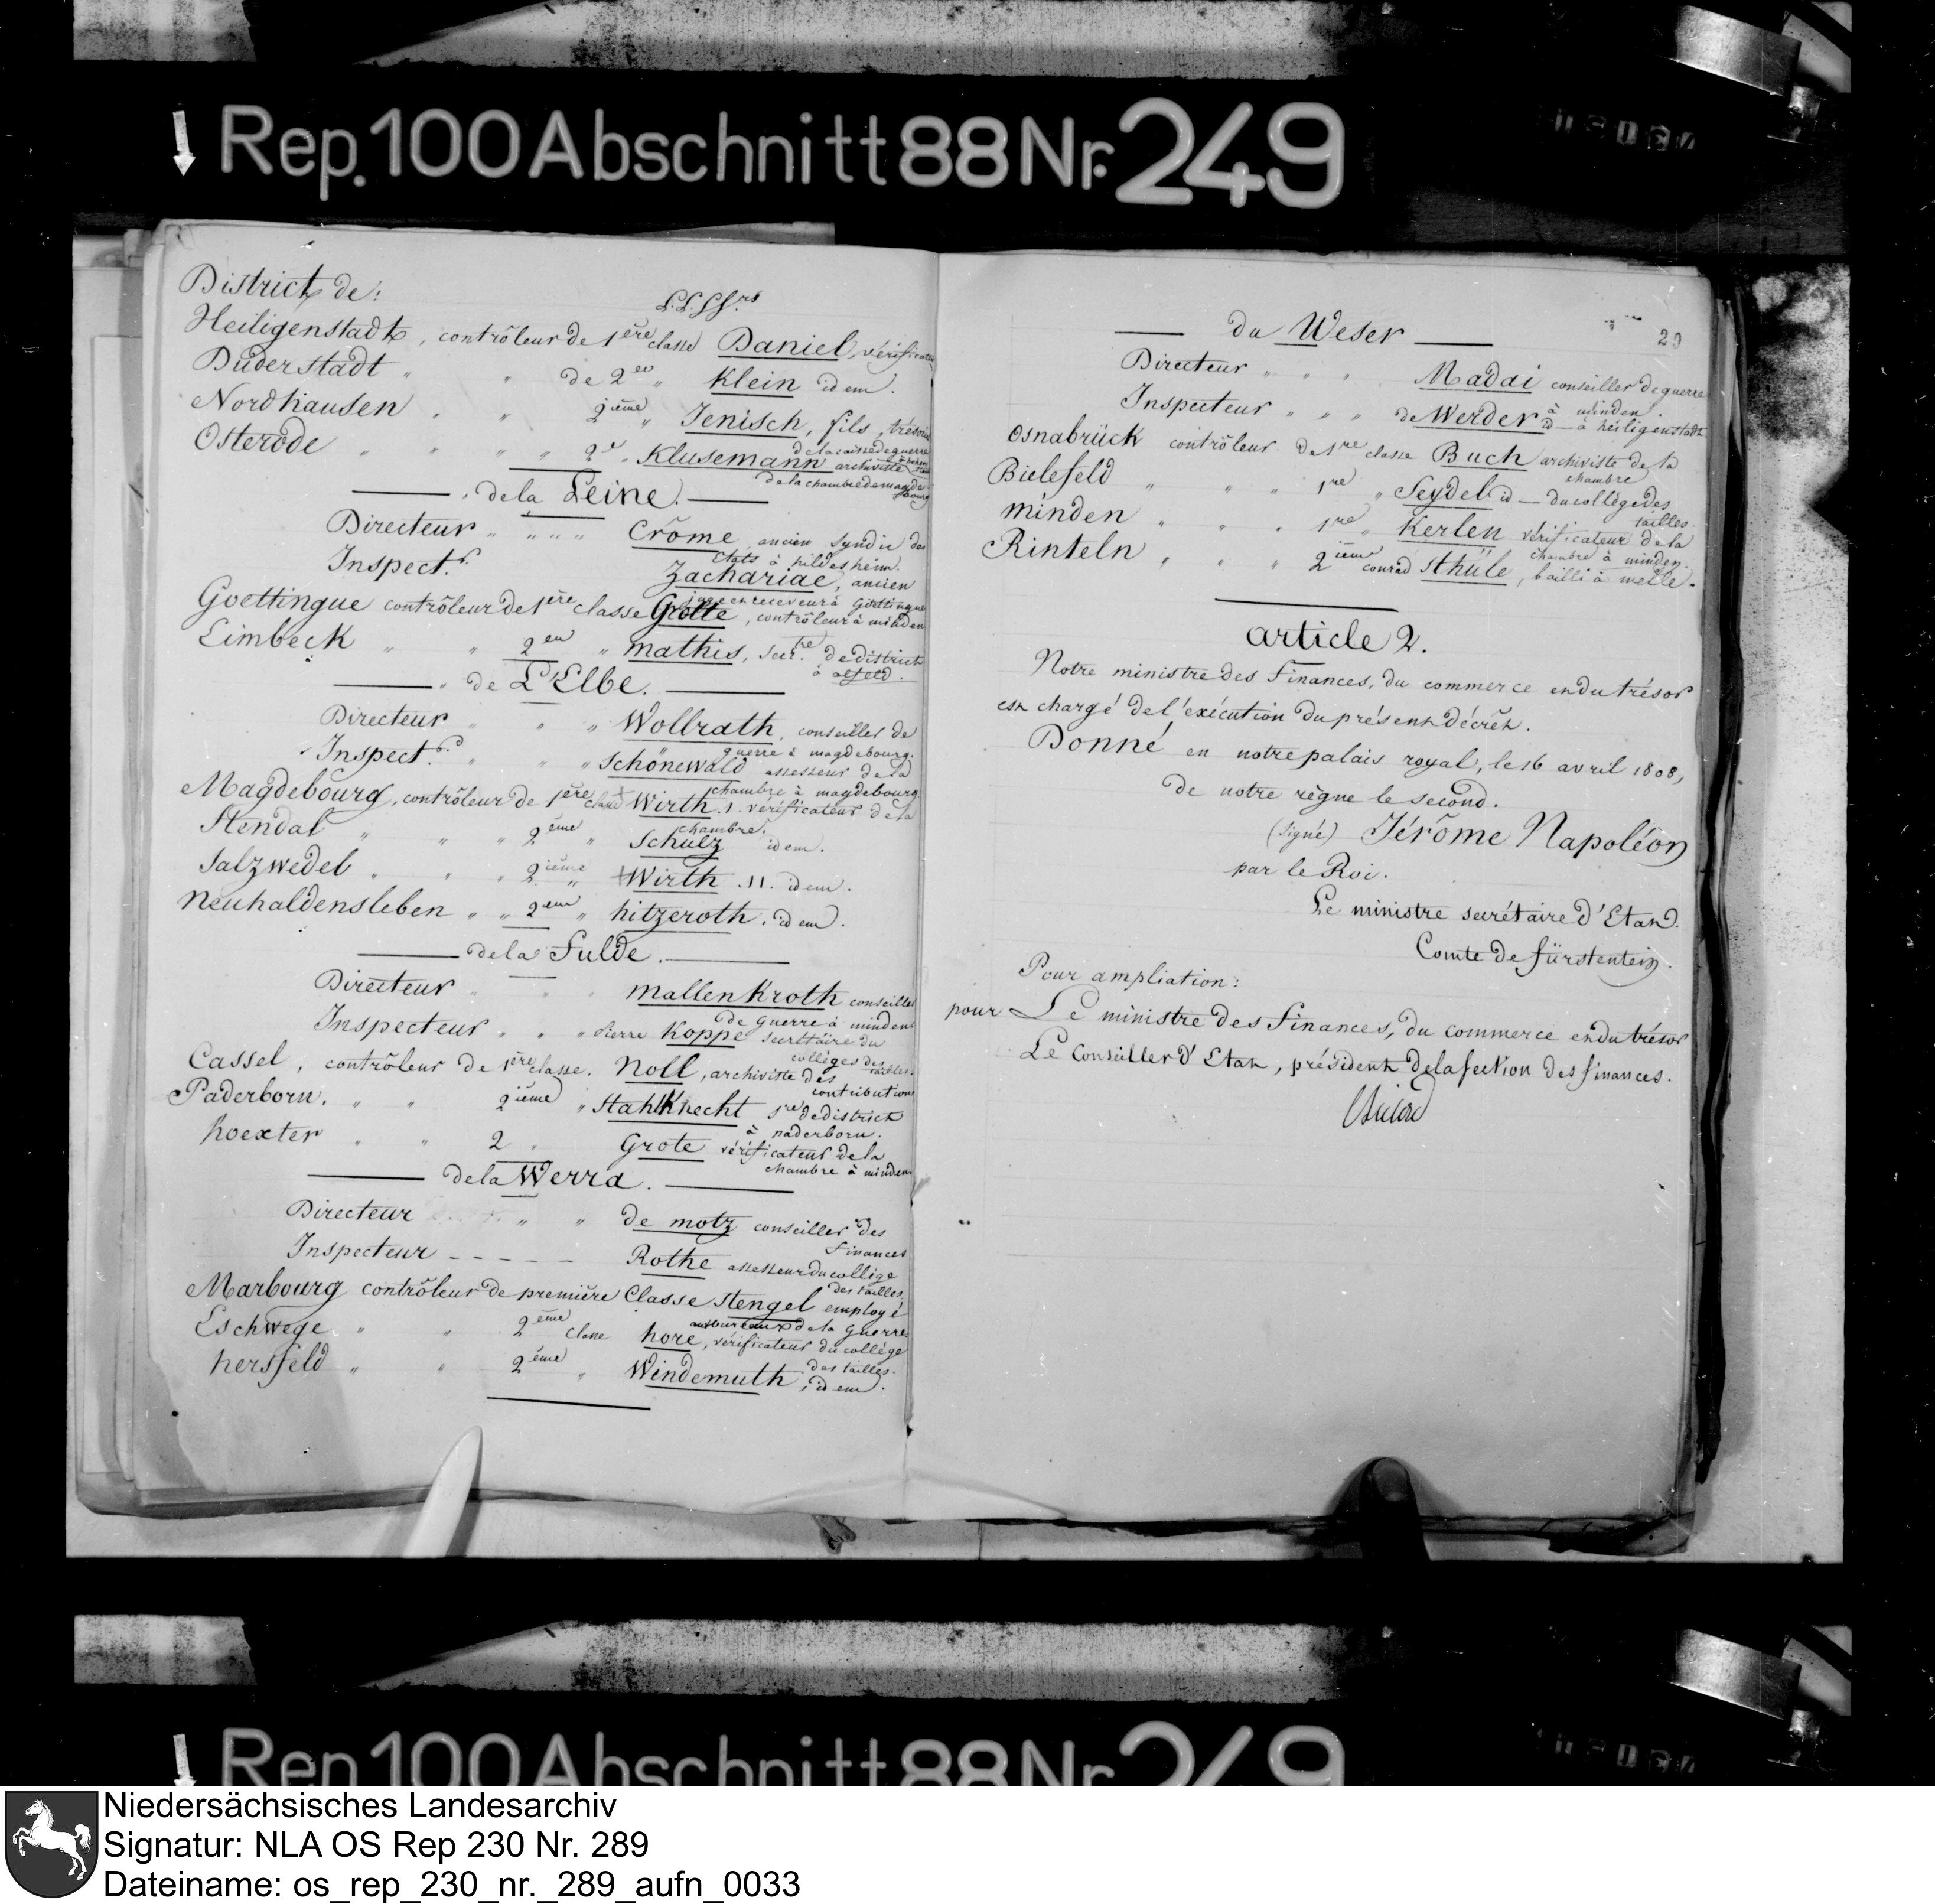 Rep. 100 Abschnitt 88 Nr. 249
District de:
L.L. SSrs
Heiligenstadt, contrôleur de 1ère classe Daniel, vérificateur
Duderstadt " " de 2e " Klein idem.
Nordhausen " " 2ième " Jenisch, fils, trésorier
de la caisse de guerre
Osterode " " " 2e " Klusemann archiviste
de la chambre de magdebourg
de la Leine.
Directeur " " " " Crome, ancien syndic des
Etats à hildesheim.
Inspectr. Zachariae, ancien
juge et receveur à Göttingue
Goettingue contrôleur de 1ère classe Grotte, contrôleur à minden
Eimbeck " " 2em " mathis, secrtre de district
à alfeld.
de L'Elbe.
Directeur " " " Wollrath, conseiller de
guerre à magdebourg.
Inspectr. " " " Schönewald assesseur de la
chambre à magdebourg
Magdebourg, contrôleur de 1ère classe Wirth. 1. vérificateur de la
chambre.
Stendal " " " 2ème " Schulz idem.
Salzwedel " " " 2ième " Wirth. 11. idem.
Neuhaldensleben " " 2em " hitzeroth. idem.
de la Fulde.
Directeur " " " mallenKroth conseiller
de guerre à minden
Inspecteur " " " Pierre Koppe secrétaire du
collèges des tailles.
Cassel, contrôleur de 1ère classe. Noll, archiviste des
contributions
Paderborn. " " 2ième " StahlKnecht sre de district
à paderborn.
hoexter " " 2 " Grote vérificateur de la
chambre à minden.
de la Werra.
Directeur " " de motz conseiller des
finances
Inspecteur - - - - - Rothe assesseur du collège
des tailles.
Marbourg contrôleur de première Classe Stengel employé
aux bureaux de la guerre
Eschwege " " 2ème classe hore, vérificateur du collège
des tailles.
hersfeld " " 2ème " Windemuth, idem.
du Weser
Directeur " " " Madai conseiller de guerre
à minden.
Inspecteur " " " de Werder id — à heiligenstadt
Osnabrück contrôleur de 1re classe Buch archiviste de la
chambre
Bielefeld " " " 1re " Seydel id — du collège des
tailles.
minden " " " 1re " Kerlen vérificateur de la
chambre à minden.
Rinteln " " " 2ième conrad Sthüle, bailli à melle.
article 2.
Notre ministre des Finances, du commerce et du trésor
est chargé de l'exécution du présent décrêt.
Donné en notre palais royal, le 16 avril 1808,
de notre règne le second.
(signé) Jérôme Napoléon
par le Roi.
Le ministre secrétaire d'Etat.
Comte de fürstentein.
Pour ampliation:
pour Le ministre des finances, du commerce et du trésor
Le Conseiller d'Etat, président de la section des finances.
Rep. 100 Abschnitt 88 Nr. 249
Niedersächsisches Landesarchiv
Signatur: NLA OS Rep 230 Nr. 289
Dateiname: os_rep_230_nr._289_aufn_0033